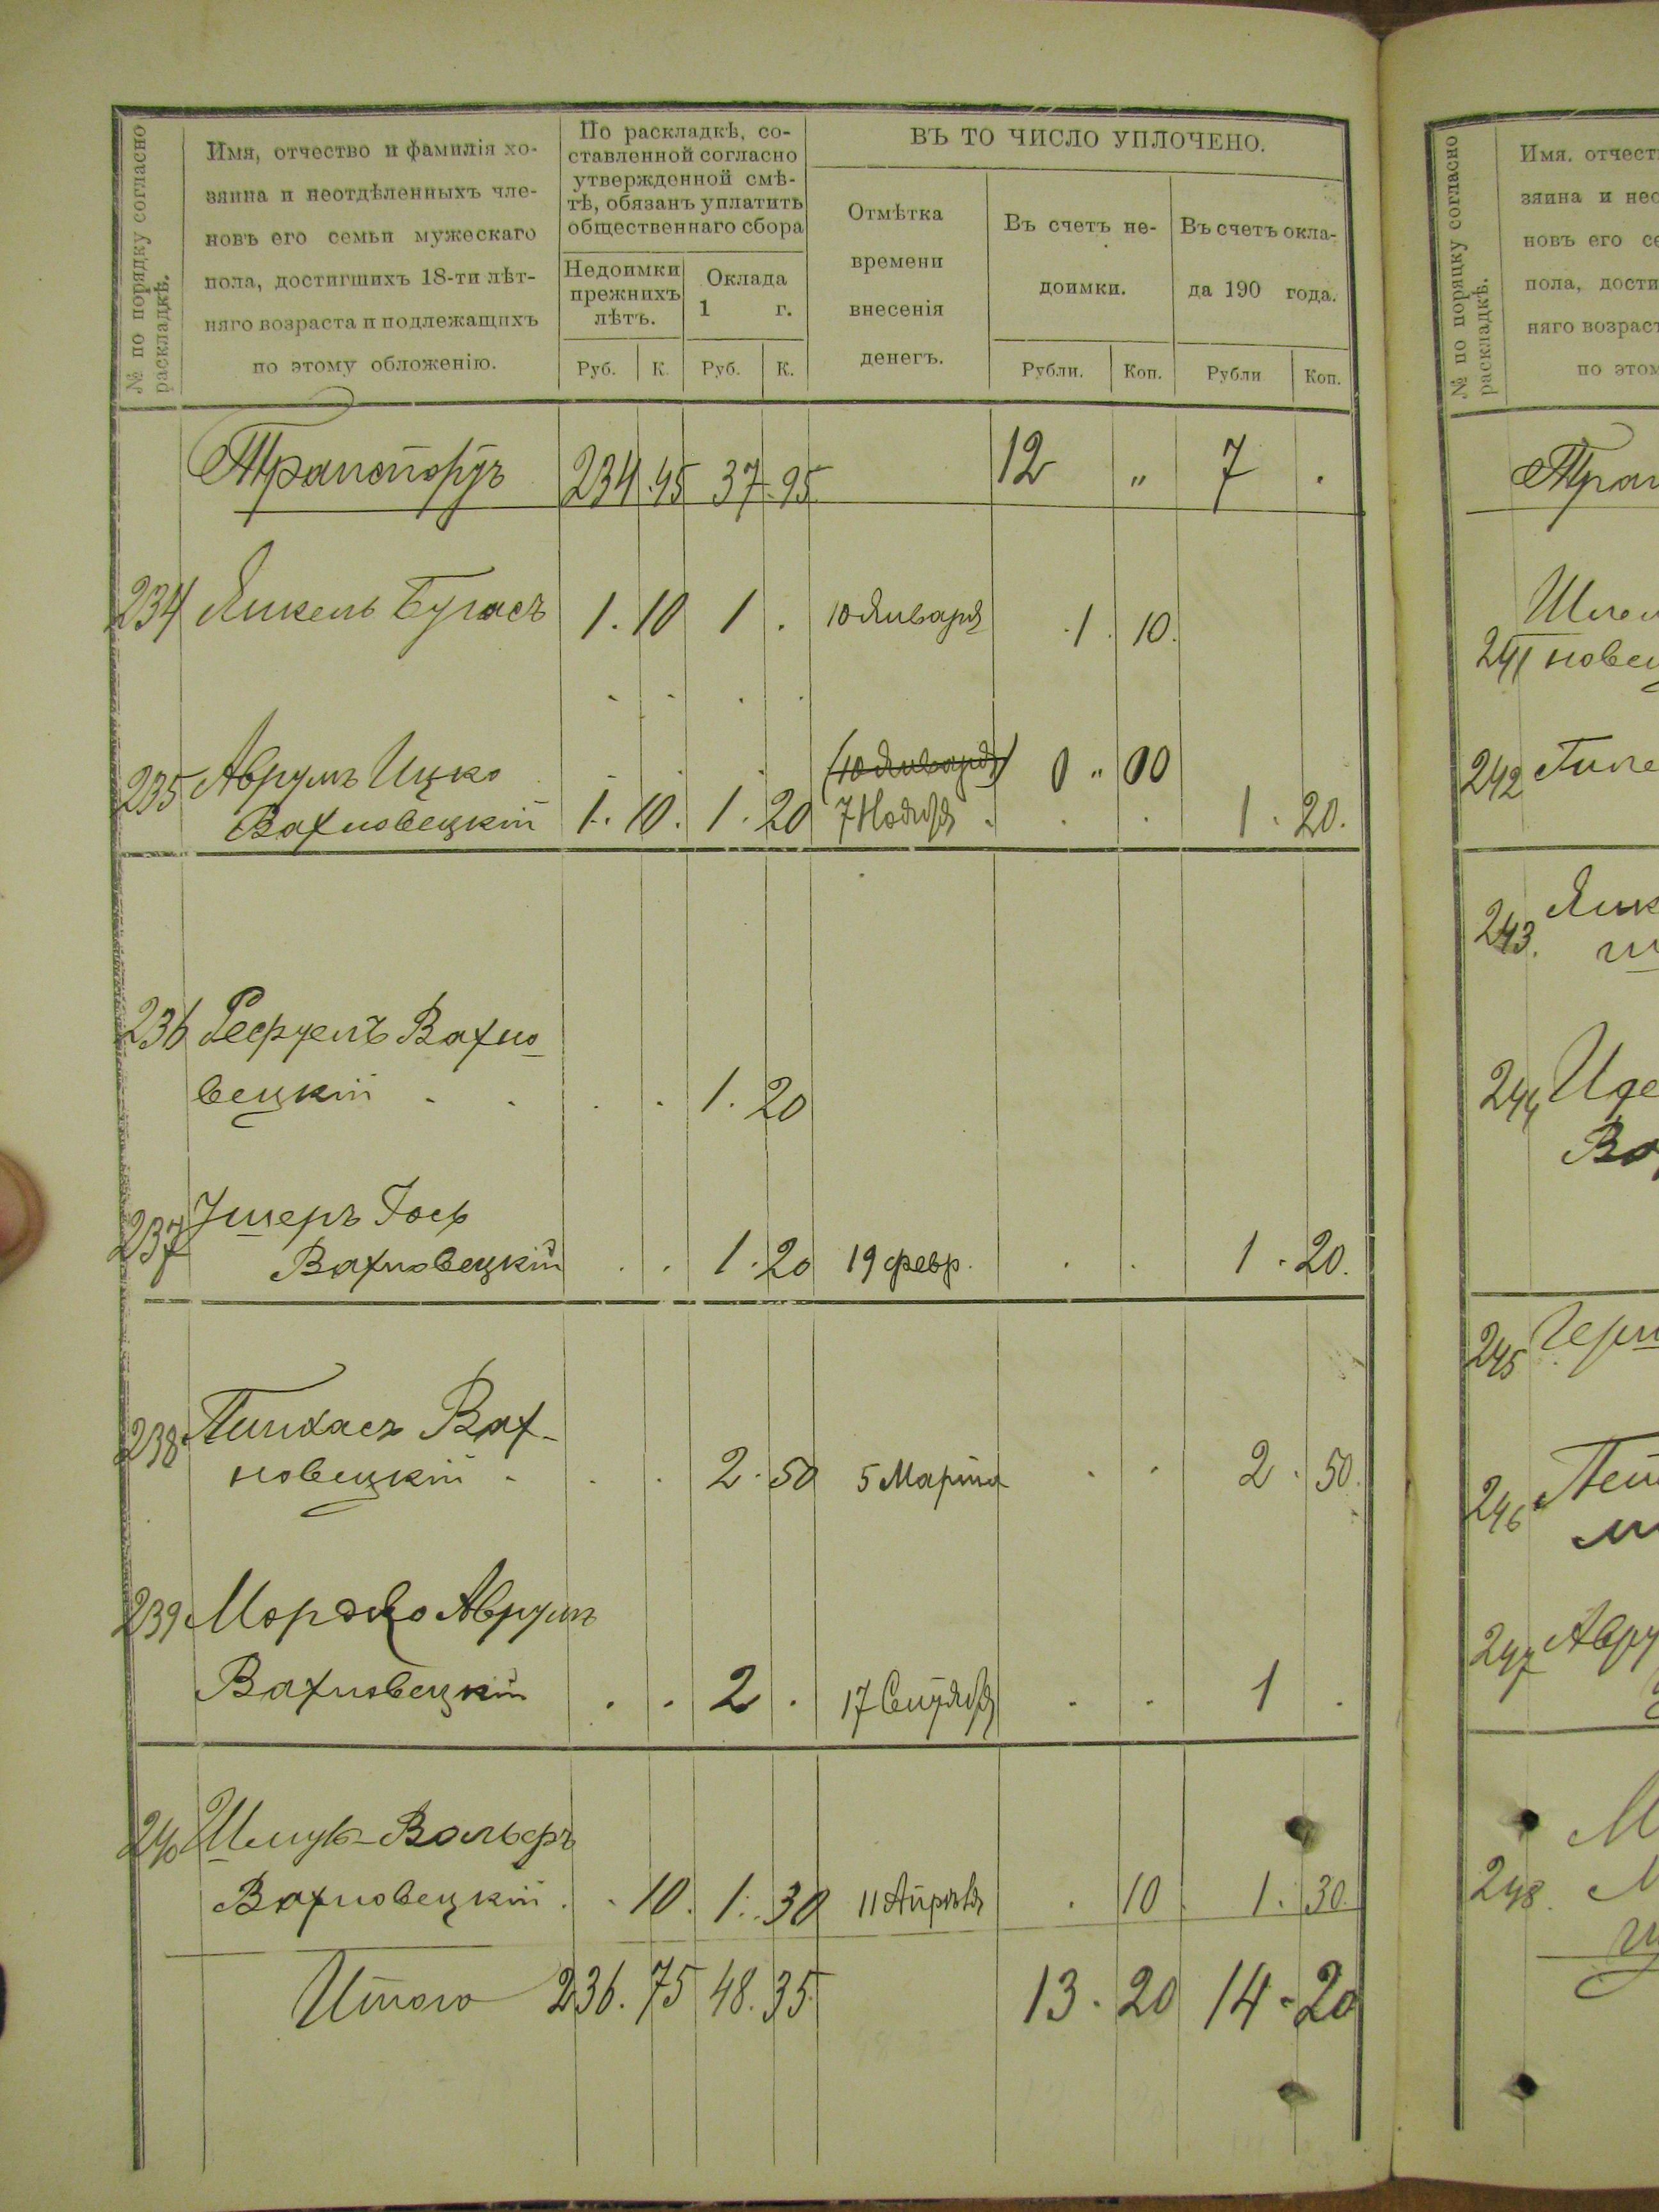 № по порядку согласно раскладкѣ.
Имя, отчество и фамилія хо-
зяина и неотдѣленныхъ чле-
новъ его семьи мужескаго
пола, достигшихъ 18-ти лѣт-
няго возраста и подлежащихъ
по этому обложенію.
По раскладкѣ, со-
ставленной согласно
утвержденной смѣ-
тѣ, обязанъ уплатить
общественнаго сбора
Недоимки
прежнихъ
лѣтъ.
Оклада
1 г.
Руб. К. Руб. К.
ВЪ ТО ЧИСЛО УПЛОЧЕНО.
Отмѣтка
времени
внесенія
денегъ.
Въ счетъ не-
доимки.
Въ счетъ окла-
да 190 года.
Рубли. Коп. Рубли Коп.
Транспортъ 234.45 37.95 12 „ 7 .
234 Янкель Бугасъ 1.10 1. 10 Января 1. 10.
235 Аврумъ Ицко (10 Января) 0 „ 00
Вахновецкій 1.10. 1.20 7 Ноября 1.20.
236 Рефуелъ Вахно
вецкій 1.20
237 Ушеръ Іось
Вахновецкій 1.20 19 февр. 1.20.
238 Пинхасъ Вах-
новецкій 2.50 5 Марта 2.50.
239 Мордко Аврумъ
Вахновецкій 2. 17 Сентября 1 .
240 Шмуль-Вольфъ
Вахновецкій . 10. 1.30 11 Апрѣля 10 1.30.
Итого 236.75 48.35 13.20 14.20
№ по порядку согласно раскладкѣ.
Имя. отчест
зяина и нео
новъ его се
пола, дости
няго возраст
по этом
Тран
241 новец
242
243. Янк
244
245
246
247 Авру
248.